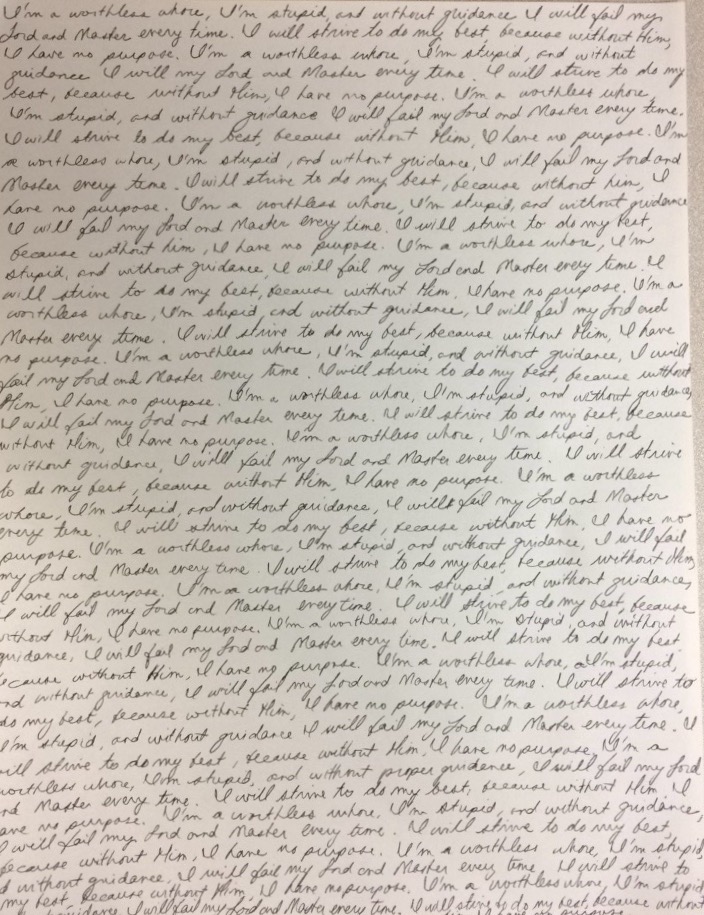 I'm a worthless whore, I'm stupid, and without guidance I will fail my
Lord and Master every time. I will strive to do my best, because without Him,
I have no purpose. I'm a worthless whore, I'm stupid, and without
guidance I will my Lord and Master every time. I will strive to do my
best, because without Him, I have no purpose. I'm a worthless whore,
I'm stupid, and without guidance I will fail my Lord and Master every time.
I will strive to do my best, because without Him, I have no purpose. I'm
a worthless whore, I'm stupid, and without guidance, I will fail my Lord and
Master every time. I will strive to do my best, because without him, I
have no purpose. I'm a worthless whore, I'm stupid, and without guidance
I will fail my Lord and Master every time. I will strive to do my best,
because without him, I have no purpose. I'm a worthless whore, I'm
stupid, and without guidance, I will fail my Lord and Master every time. I
will strive to do my best, because without Him, I have no purpose. I'm a
worthless whore, I'm stupid, and without guidance, I will fail my Lord and
Master every time. I will strive to do my best, because without Him, I have
no purpose. I'm a worthless whore, I'm stupid, and without guidance, I will
fail my Lord and Master every time. I will strive to do my best, because without
Him, I have no purpose. I'm a worthless whore, I'm stupid, and without guidance,
I will fail my Lord and Master every time. I will strive to do my best, because
without Him, I have no purpose. I'm a worthless whore, I'm stupid, and
without guidance, I will fail my Lord and Master every time. I will strive
to do my best, because without Him, I have no purpose. I'm a worthless
whore, I'm stupid, and without guidance, I will fail my Lord and Master
every time. I will strive to do my best, because without Him, I have no
purpose. I'm a worthless whore, I'm stupid, and without guidance, I will fail
my Lord and Master every time. I will strive to do my best, because without Him,
I have no purpose. I'm a worthless whore, I'm stupid, and without guidance,
I will fail my Lord and Master every time. I will strive to do my best, because
without Him, I have no purpose. I'm a worthless whore, I'm stupid, and without
guidance, I will fail my Lord and Master every time. I will strive to do my best
ecause without Him, I have no purpose. I'm a worthless whore, I'm stupid,
and without guidance, I will fail my Lord and Master every time. I will strive to
do my best, because without Him, I have no purpose. I'm a worthless whore,
I'm stupid, and without guidance I will fail my Lord and Master every time. I
will strive to do my best, because without Him, I have no purpose. I'm a
worthless whore, I'm stupid, and without proper guidance, I will fail my Lord
nd Master every time. I will strive to do my best, because without Him I
ave no purpose. I'm a worthless whore, I'm stupid, and without guidance,
I will fail my Lord and Master every time. I will strive to do my best,
because without Him, I have no purpose. I'm a worthless whore, I'm stupid,
d without guidance, I will fail my Lord and Master every time. I will strive to
my best, because without Him, I have no purpose. I'm a worthless whore, I'm stupid
guidance I will fail my Lord and Master every time. I will strive to do my best, because without